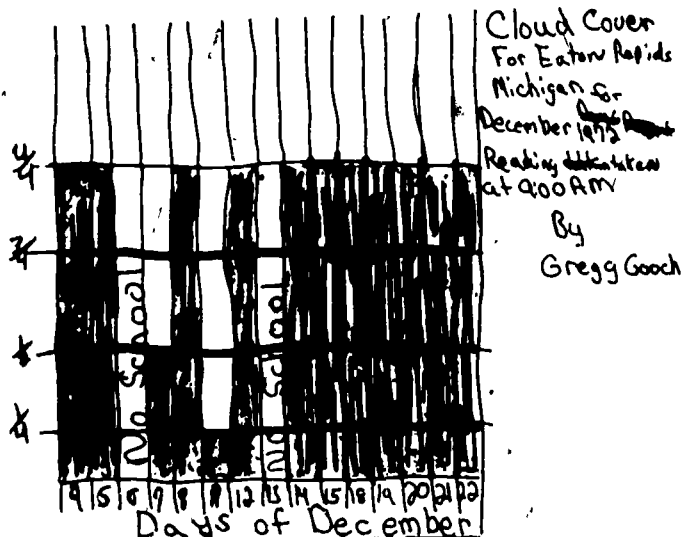 Cloud Cover
For Eaton Rapids
Michigan for
December 1972
Reading taken
at 9:00 AM
By
Gregg Gooch
4/4
3/4
1/4
No School
No School
4 5 6 7 8 11 12 13 14 15 18 19 20 21 22
Days of December